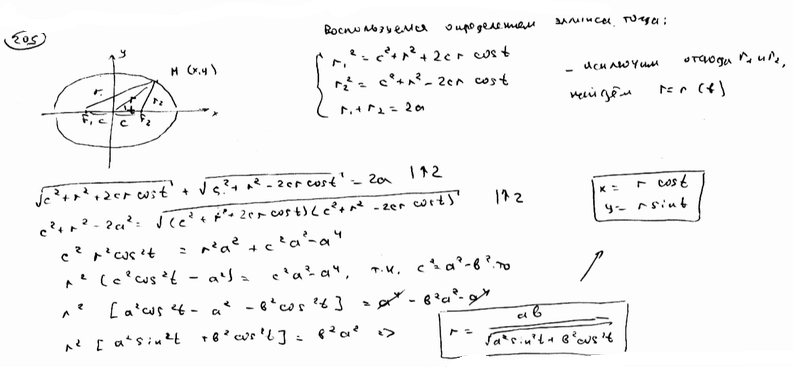 205
Воспользуемся определением эллипса, тогда:
y
M (x,y)
r₁ r r₂
t
F₁ c c F₂ x
r₁² = c² + r² + 2cr cost
r₂² = c² + r² - 2cr cost
r₁ + r₂ = 2a
- исключим отсюда r₁ и r₂,
найдём r = r(t)
√(c² + r² + 2cr cost) + √(c² + r² - 2cr cost) = 2a |↑2
c² + r² - 2a² = √((c² + r² + 2cr cost)(c² + r² - 2cr cost)) |↑2
c² r² cos²t = r²a² + c²a² - a⁴
r² (c² cos²t - a²) = c²a² - a⁴, т.к. c² = a² - b², то
r² [a² cos²t - a² - b² cos²t] = a⁴ - b²a² - a⁴
r² [a² sin²t + b² cos²t] = b²a² =>
r = ab / √(a² sin²t + b² cos²t)
x = r cost
y = r sint